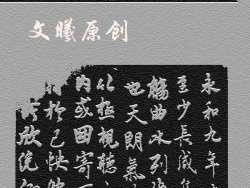 文曦原创
永和九年
至少長咸集
觴曲水列
也天朗氣
以極視聽
内或因寄
於己快
欣俛